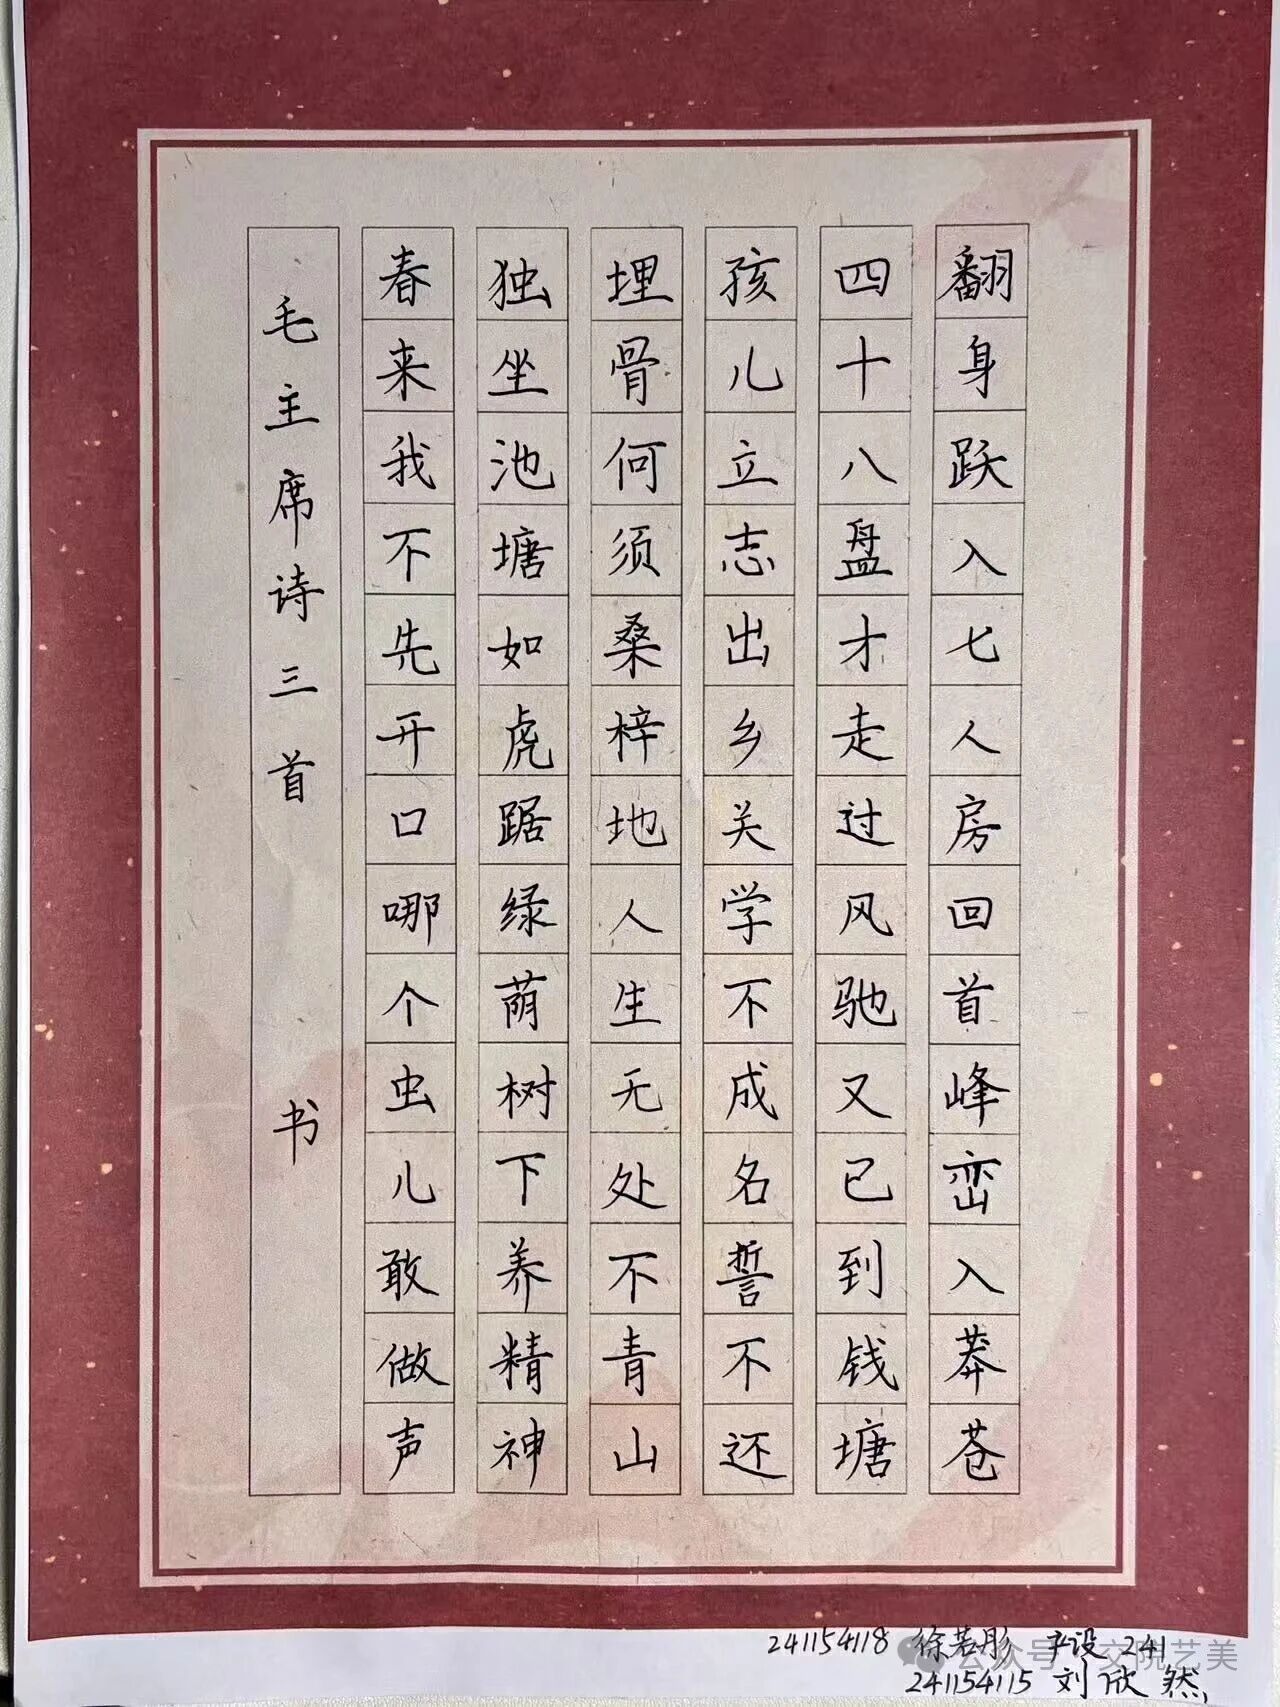 翻身跃入七人房回首峰峦入莽苍
四十八盘才走过风驰又已到钱塘
孩儿立志出乡关学不成名誓不还
埋骨何须桑梓地人生无处不青山
独坐池塘如虎踞绿荫树下养精神
春来我不先开口哪个虫儿敢做声
毛主席诗三首 书
241154118 徐若彤 产设241
公众号 交院艺美
241154115 刘欣然